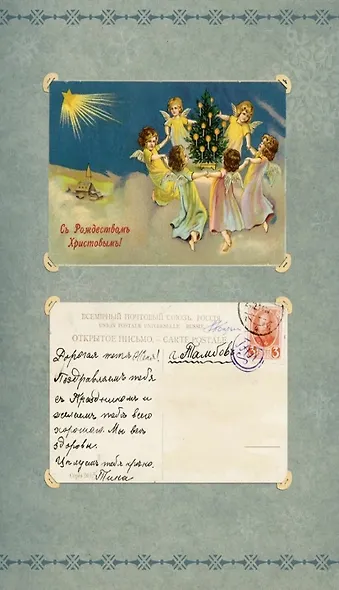 Съ Рождествомъ
Христовымъ!
ВСЕМІРНЫЙ ПОЧТОВЫЙ СОЮЗЪ. РОССІЯ
UNION POSTALE UNIVERSELLE. RUSSIE
ОТКРЫТОЕ ПИСЬМО. — CARTE POSTALE
Дорогая тетя!
Поздравляемъ тебя
съ Праздникомъ и
желаемъ тебѣ всего
хорошаго. Мы всѣ
здоровы.
Цѣлуемъ тебя крѣпко.
Тина
г. Тамбовъ
3